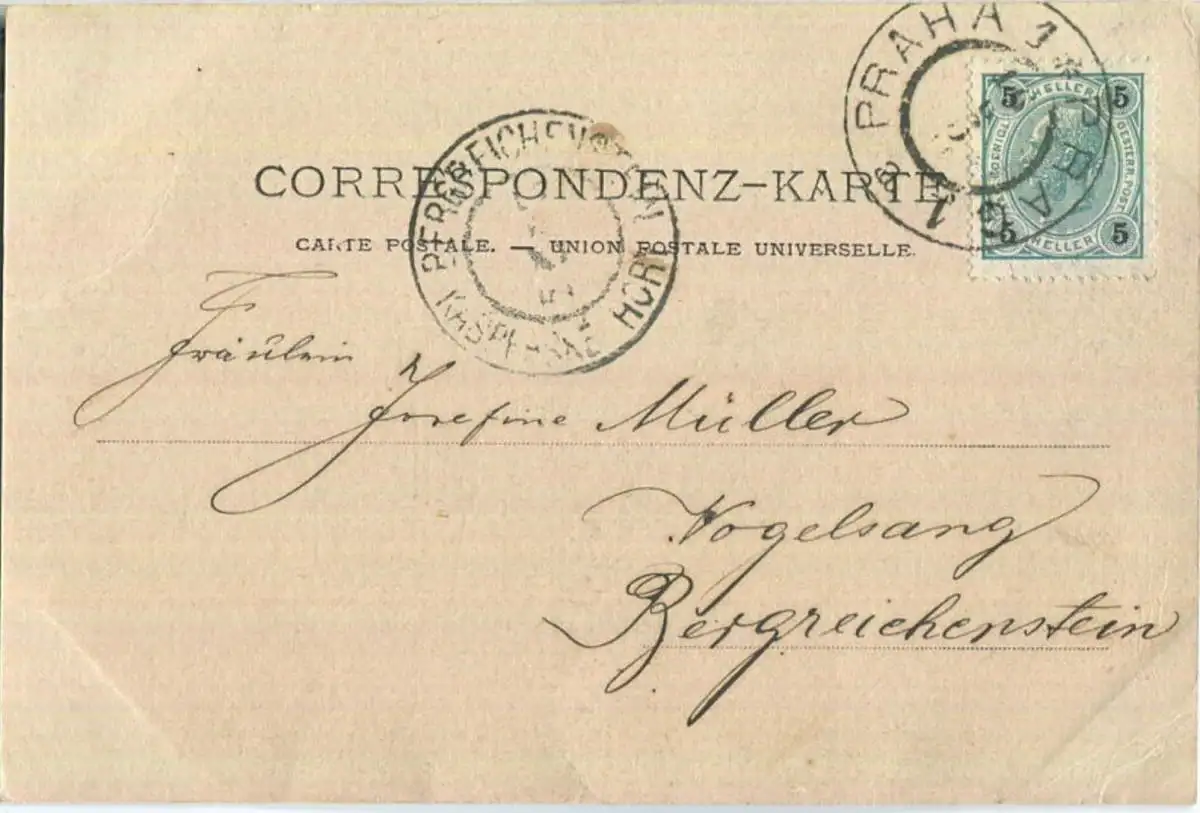 PRAHA 1
5 HELLER 5
OESTERR. POST
5 HELLER 5
BERGREICHENSTEIN
KAŠPERSKÉ HORY
CORRESPONDENZ-KARTE
CARTE POSTALE. — UNION POSTALE UNIVERSELLE.
Fräulein
Josefine Müller
Vogelsang
Bergreichenstein